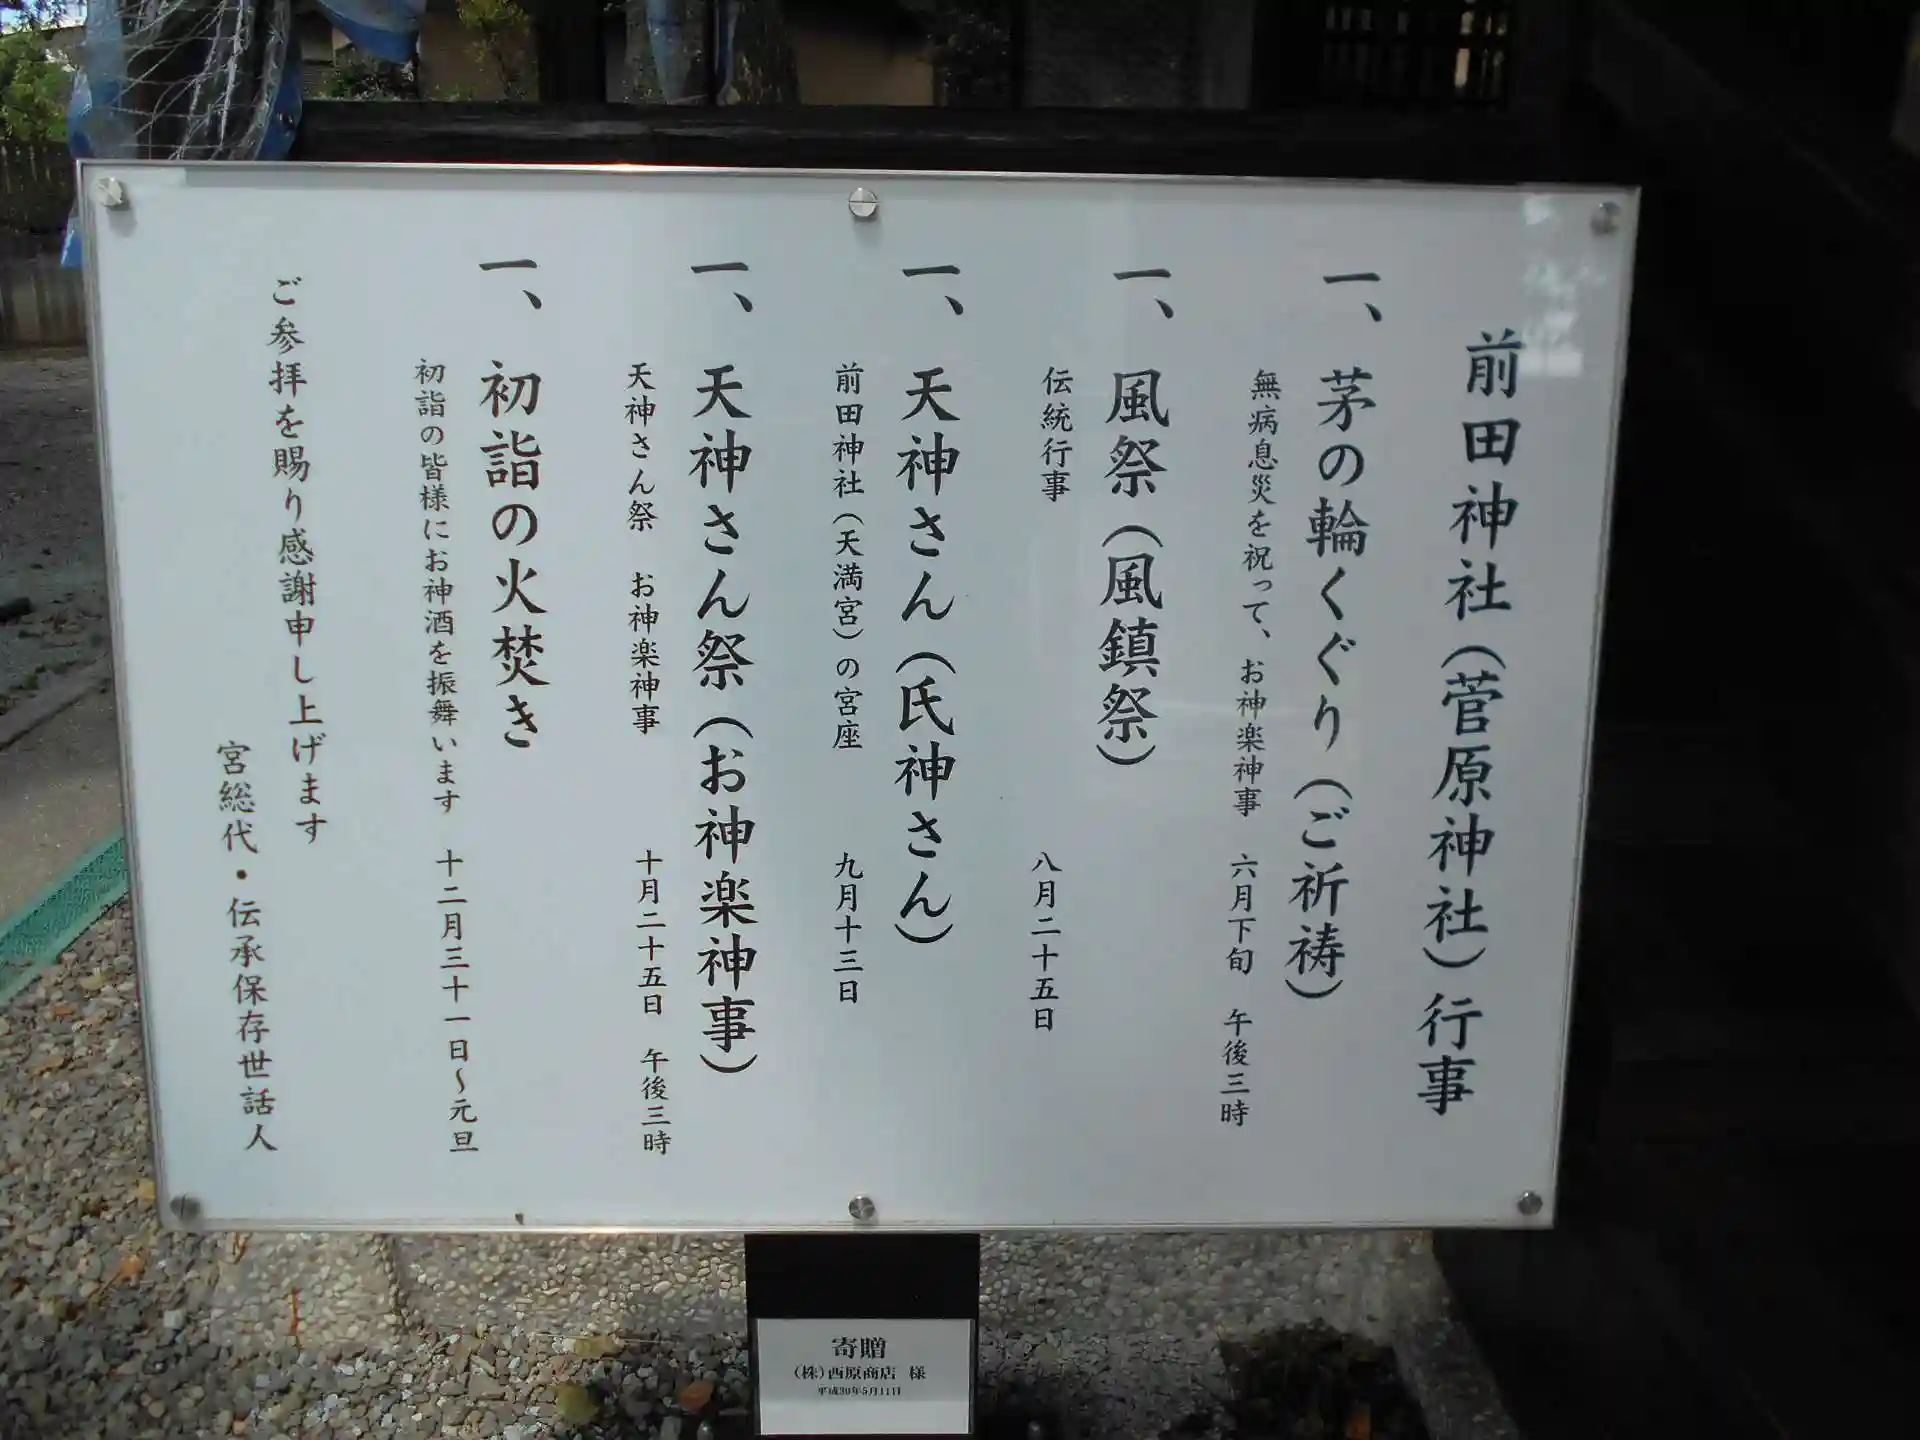 前田神社（菅原神社）行事
一、茅の輪くぐり（ご祈祷）
無病息災を祝って、お神楽神事　六月下旬　午後三時
一、風祭（風鎮祭）
伝統行事　八月二十五日
一、天神さん（氏神さん）
前田神社（天満宮）の宮座　九月十三日
一、天神さん祭（お神楽神事）
天神さん祭　お神楽神事　十月二十五日　午後三時
一、初詣の火焚き
初詣の皆様にお神酒を振舞います　十二月三十一日～元旦
ご参拝を賜り感謝申し上げます
宮総代・伝承保存世話人
寄贈
（株）西原商店　様
平成30年5月11日